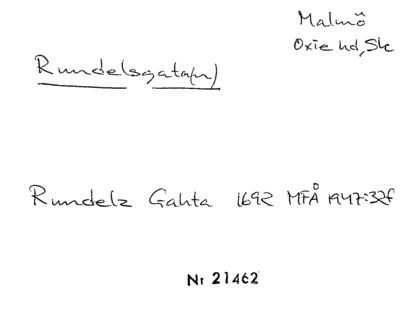 Malmö
Oxie hd, Sk
Rundelsgata(n)
Rundelz Gahta 1692 MFÅ 1947:32f
Nr 21462